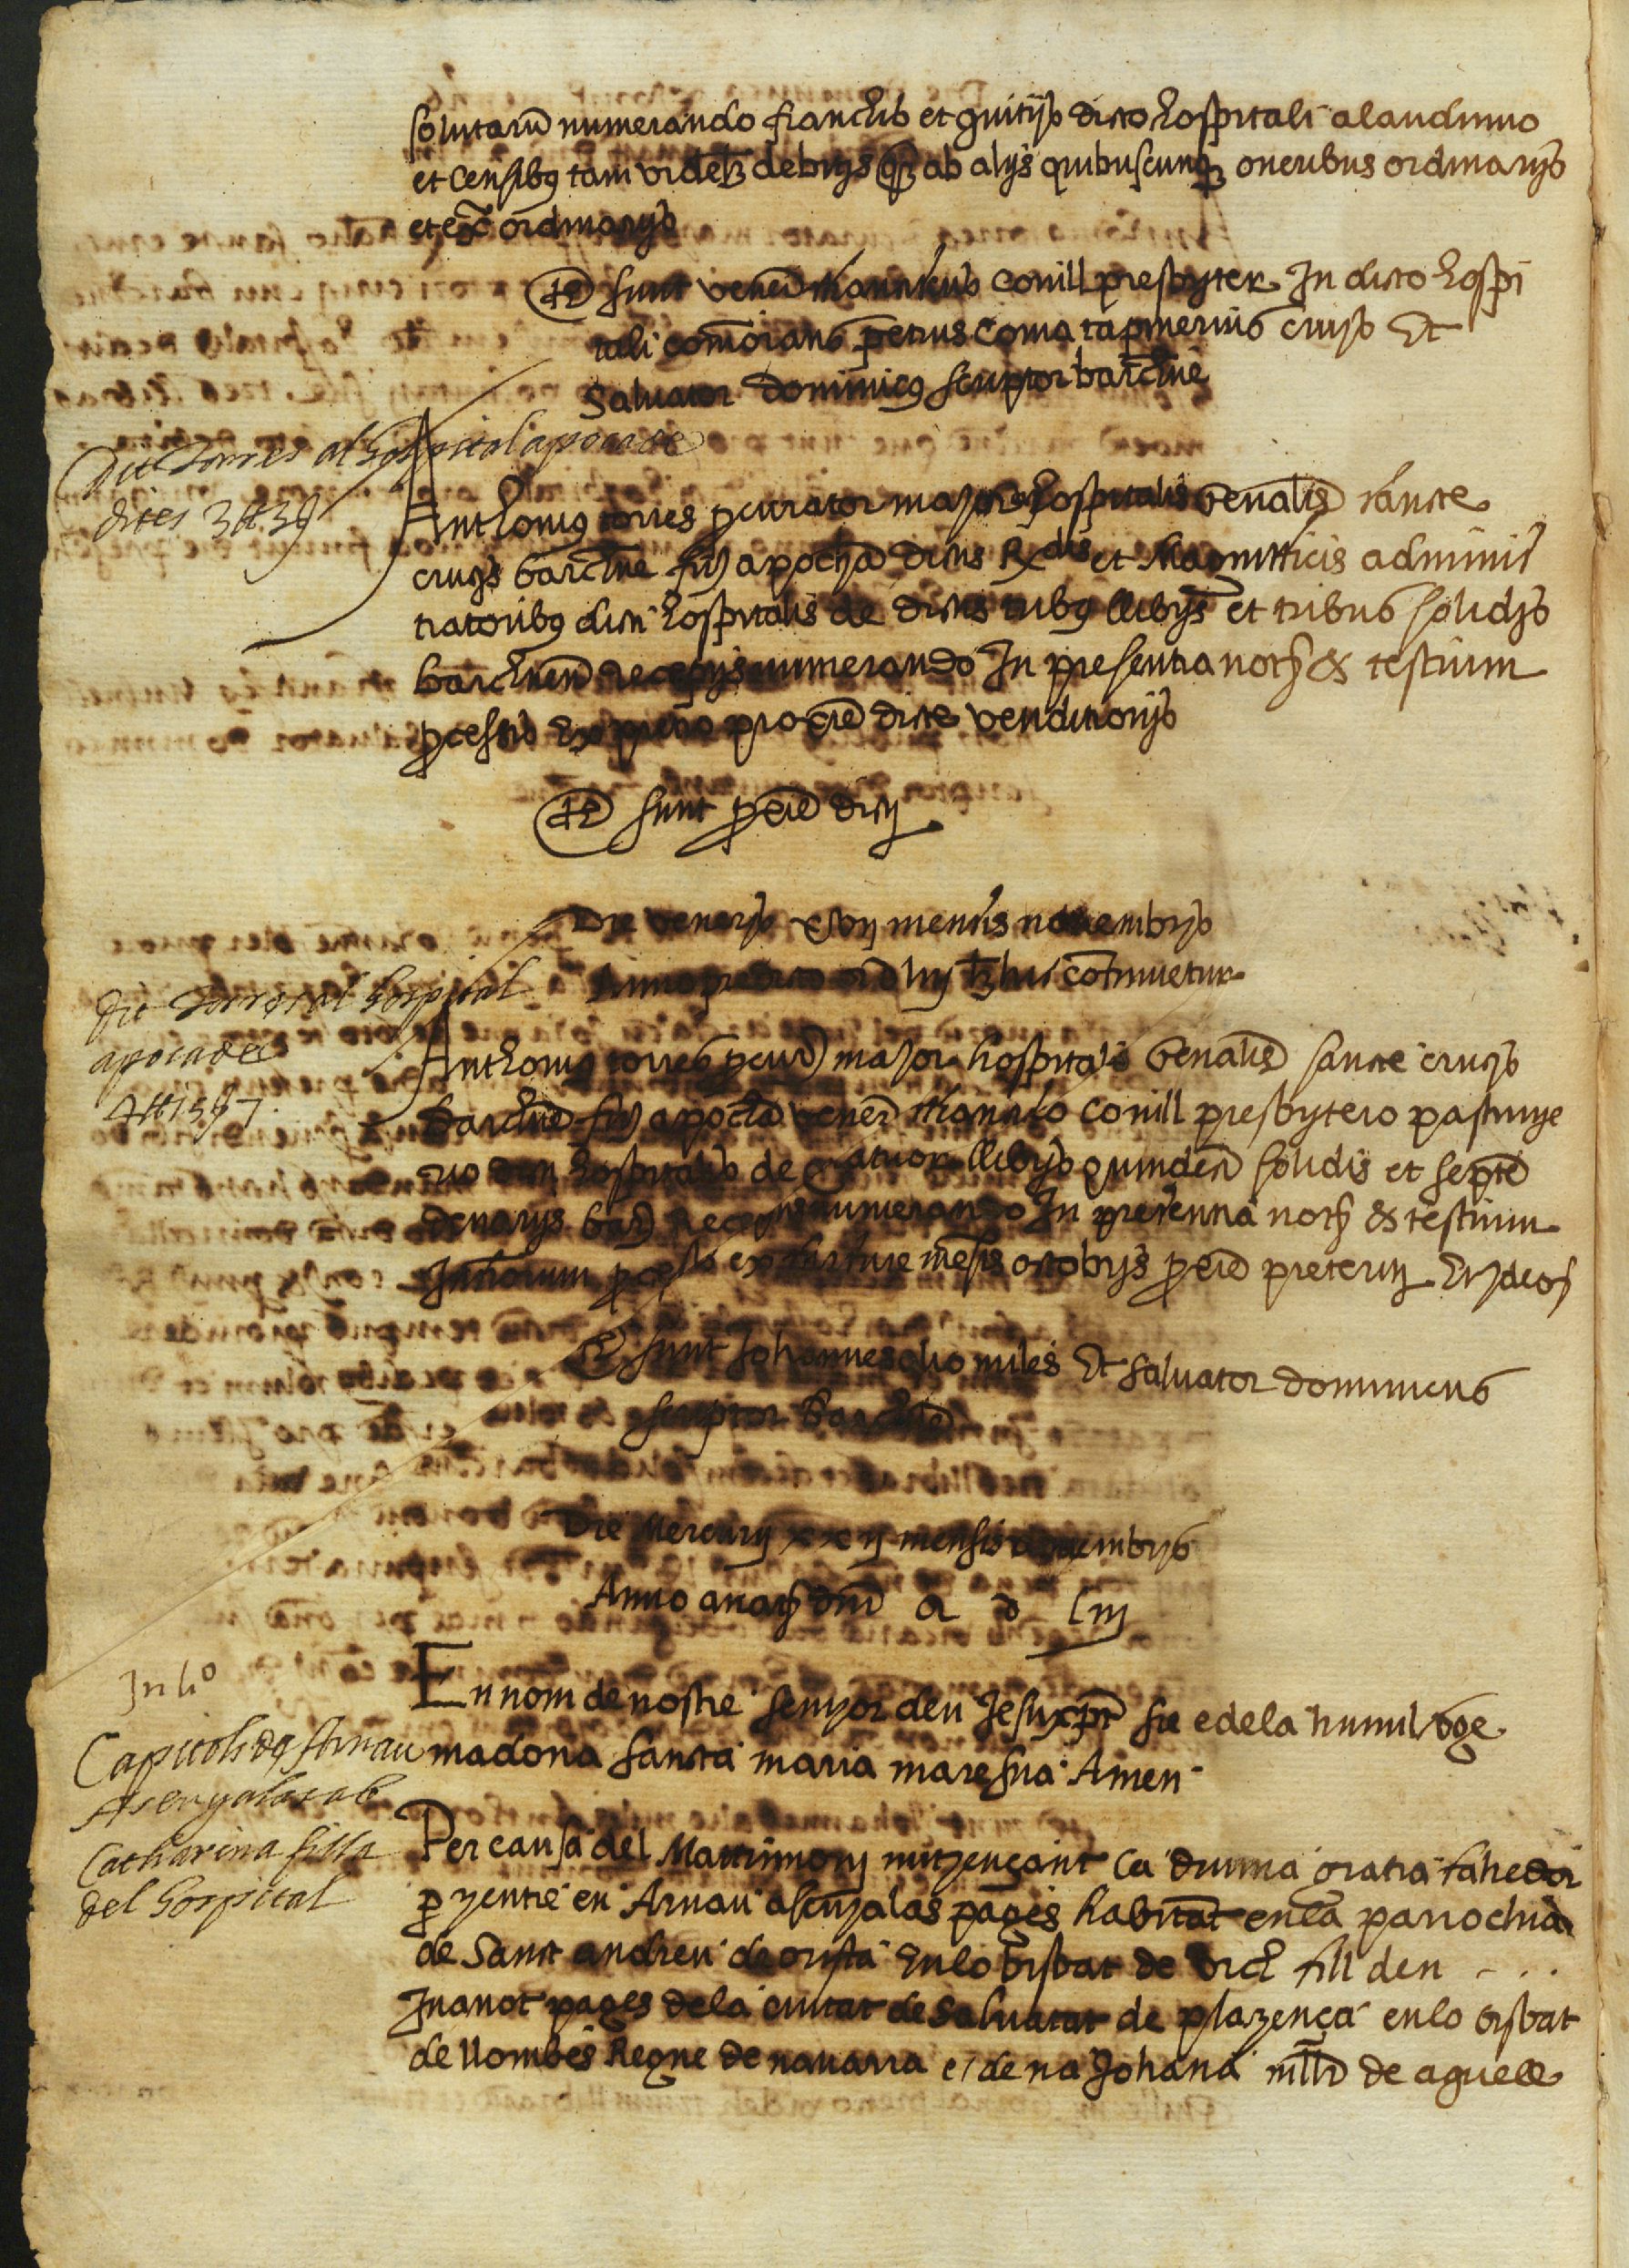 solutarũ numerando franchis et quitijs dicto hospitali alaudimio
et censibus tam videlz debitijs qz ab alijs quibuscunqz oneribus ordinarijs
et ex̃ ordinarijs
Tẽ sunt veneř conill presbyter In dicto hospi
tali com̃orans petrus coma tapinerius civis Et
Salvator dominicus scriptor barchne
Dit torres al hospital apoca de
dites 3 ll 3 s
Anthonius torres ꝑcurator major hospitalis genalis sancte
crucis barchne fir̃ apocham dictis Rdis et Magnifficis adminis
tratoribus dicti hospitalis de dictis tribus llibris et tribus solidis
barchneñ receptis numerando In presentia notȷ & testium
ex precio ꝓcie dicte venditionis
Tẽ sunt ꝓcie dicti
Die veneris xvij mensis novembris
Anno predicto
dit torres al hospital
apoca de
4 ll 15 s 7
Anthonius torres ꝓcur̃ major hospitalis genalis sancte crucis
barchne fir̃ apocã veneř conill presbytero
dicti hospitalis de quatuor llibris quindeci solidis et septe
denarijs barc̃ receptis numerando In presentia notȷ & testium
Infrorum ex mesis octobris ꝓcie preteriti
Tẽ sunt Johannes olio miles Et salvator dominicus
scriptor Barchne
Die Mercurij xxij mensis novembris
Anno a natȷ dñi M D Liij
In lio
Capitols de Arnau
Asenyalas ab
Catharina filla
del hospital
En nom de nostre senyor deu Jesuxp̃t sie e dela humil v̈ge
madona sancta maria mare sua Amen
Per causa del Matrimonj mitjençant la divina gratia fahedor
ꝑ y entre en Arnau asenyalas pages habitãt en la parrochia
de Sanct andreu de orista En lo bisbat de vich fill den - . .
Juanot pages dela ciutat de Salvatat de plazença en lo bisbat
de llombes Regne de navarra e de na Johana mllr̃ de aquell